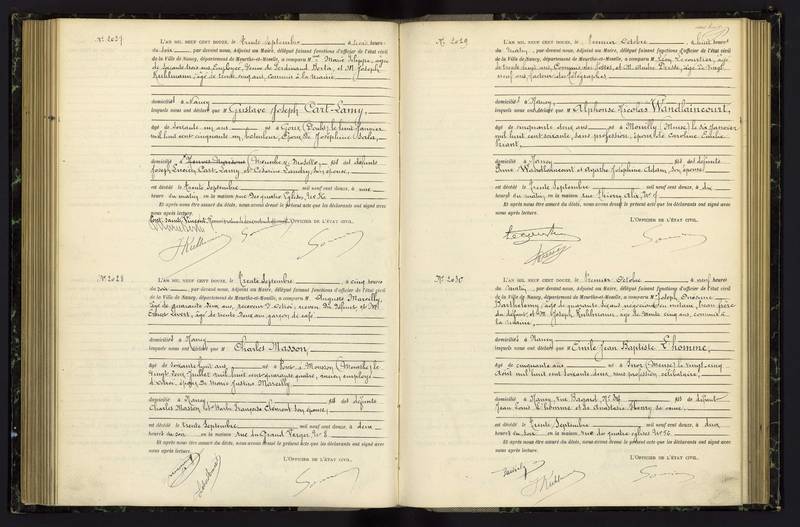 N° 2027
L'AN MIL NEUF CENT DOUZE, le trente Septembre à trois heures
du soir, par devant nous, Adjoint au Maire, délégué faisant fonctions d'officier de l'état civil
de la Ville de Nancy, département de Meurthe-et-Moselle, a comparu M Marie
Employée, Ferdinand Berta, et M Joseph
Kuhlmann, âgé de trente cinq ans, commis à la mairie
domicilié à Nancy
lesquels nous ont déclaré que M Gustave Joseph Cart-Lamy,
âgé de soixante un ans né à Goux (Doubs) le huit Janvier
mil huit cent cinquante un, époux de Joséphine Berta,
domicilié à (Meurthe & Moselle) fils des défunts
Joseph Lucien Cart-Lamy et Césarine Landry, son épouse,
est décédé le trente Septembre mil neuf cent douze, à une
heure du matin en la maison rue des quatre Eglises, N° 56
Et après nous être assuré du décès, nous avons dressé le présent acte que les déclarants ont signé avec
nous après lecture.
L'OFFICIER DE L'ÉTAT CIVIL.
N° 2028
L'AN MIL NEUF CENT DOUZE, le trente Septembre à cinq heures
du soir, par devant nous, Adjoint au Maire, délégué faisant fonctions d'officier de l'état civil
de la Ville de Nancy, département de Meurthe-et-Moselle, a comparu M Auguste Marcilly,
âgé de quarante deux ans, receveur d'octroi, neveu du défunt et M
âgé de trente deux ans garçon de café
domicilié à Nancy
lesquels nous ont déclaré que M Charles Masson,
âgé de soixante huit ans né à Pont à Mousson (Meurthe) le
vingt deux Juillet mil huit cent quarante quatre, ancien employé
d'octroi, époux de Marie Justine Marcilly
domicilié à Nancy fils des défunts
Charles Masson et Marie Françoise Clément son épouse,
est décédé le trente Septembre mil neuf cent douze, à deux
heures du soir en la maison rue du Grand Verger N° 8
Et après nous être assuré du décès, nous avons dressé le présent acte que les déclarants ont signé avec
nous après lecture.
L'OFFICIER DE L'ÉTAT CIVIL.
N° 2029
L'AN MIL NEUF CENT DOUZE, le premier Octobre à huit heures
du matin, par devant nous, Adjoint au Maire, délégué faisant fonctions d'officier de l'état civil
de la Ville de Nancy, département de Meurthe-et-Moselle, a comparu M Léon Lecourtier, âgé
de trente ans, Commis des Postes, et M André
neuf ans, facteur des télégraphes
domicilié à Nancy
lesquels nous ont déclaré que M Alphonse Nicolas Wandlaincourt,
âgé de cinquante deux ans né à Mouilly (Meuse) le six Janvier
mil huit cent soixante, sans profession, époux de Caroline Emilie
domicilié à Nancy fils des défunts
Wandlaincourt et Agathe Joséphine Adam, son épouse
est décédé le trente Septembre mil neuf cent douze, à
heures du matin en la maison rue Thierry Alix, N° 7
Et après nous être assuré du décès, nous avons dressé le présent acte que les déclarants ont signé avec
nous après lecture.
L'OFFICIER DE L'ÉTAT CIVIL.
N° 2030
L'AN MIL NEUF CENT DOUZE, le premier Octobre à neuf heures
du matin, par devant nous, Adjoint au Maire, délégué faisant fonctions d'officier de l'état civil
de la Ville de Nancy, département de Meurthe-et-Moselle, a comparu M Joseph
Barthélemy, âgé de quarante ans, beau frère
du défunt et M Joseph Kuhlmann, âgé de trente cinq ans, commis à
la mairie,
domicilié à Nancy
lesquels nous ont déclaré que M Emile Jean Baptiste L'homme,
âgé de cinquante ans né à Inor (Meuse) le vingt cinq
Août mil huit cent soixante deux, sans profession, célibataire,
domicilié à Nancy, rue N° 36 fils de défunt
Jean Louis L'homme et de Anastasie Henry sa veuve
est décédé le trente Septembre mil neuf cent douze, à deux
heures du soir en la maison rue des quatre églises N° 56
Et après nous être assuré du décès, nous avons dressé le présent acte que les déclarants ont signé avec
nous après lecture.
L'OFFICIER DE L'ÉTAT CIVIL.